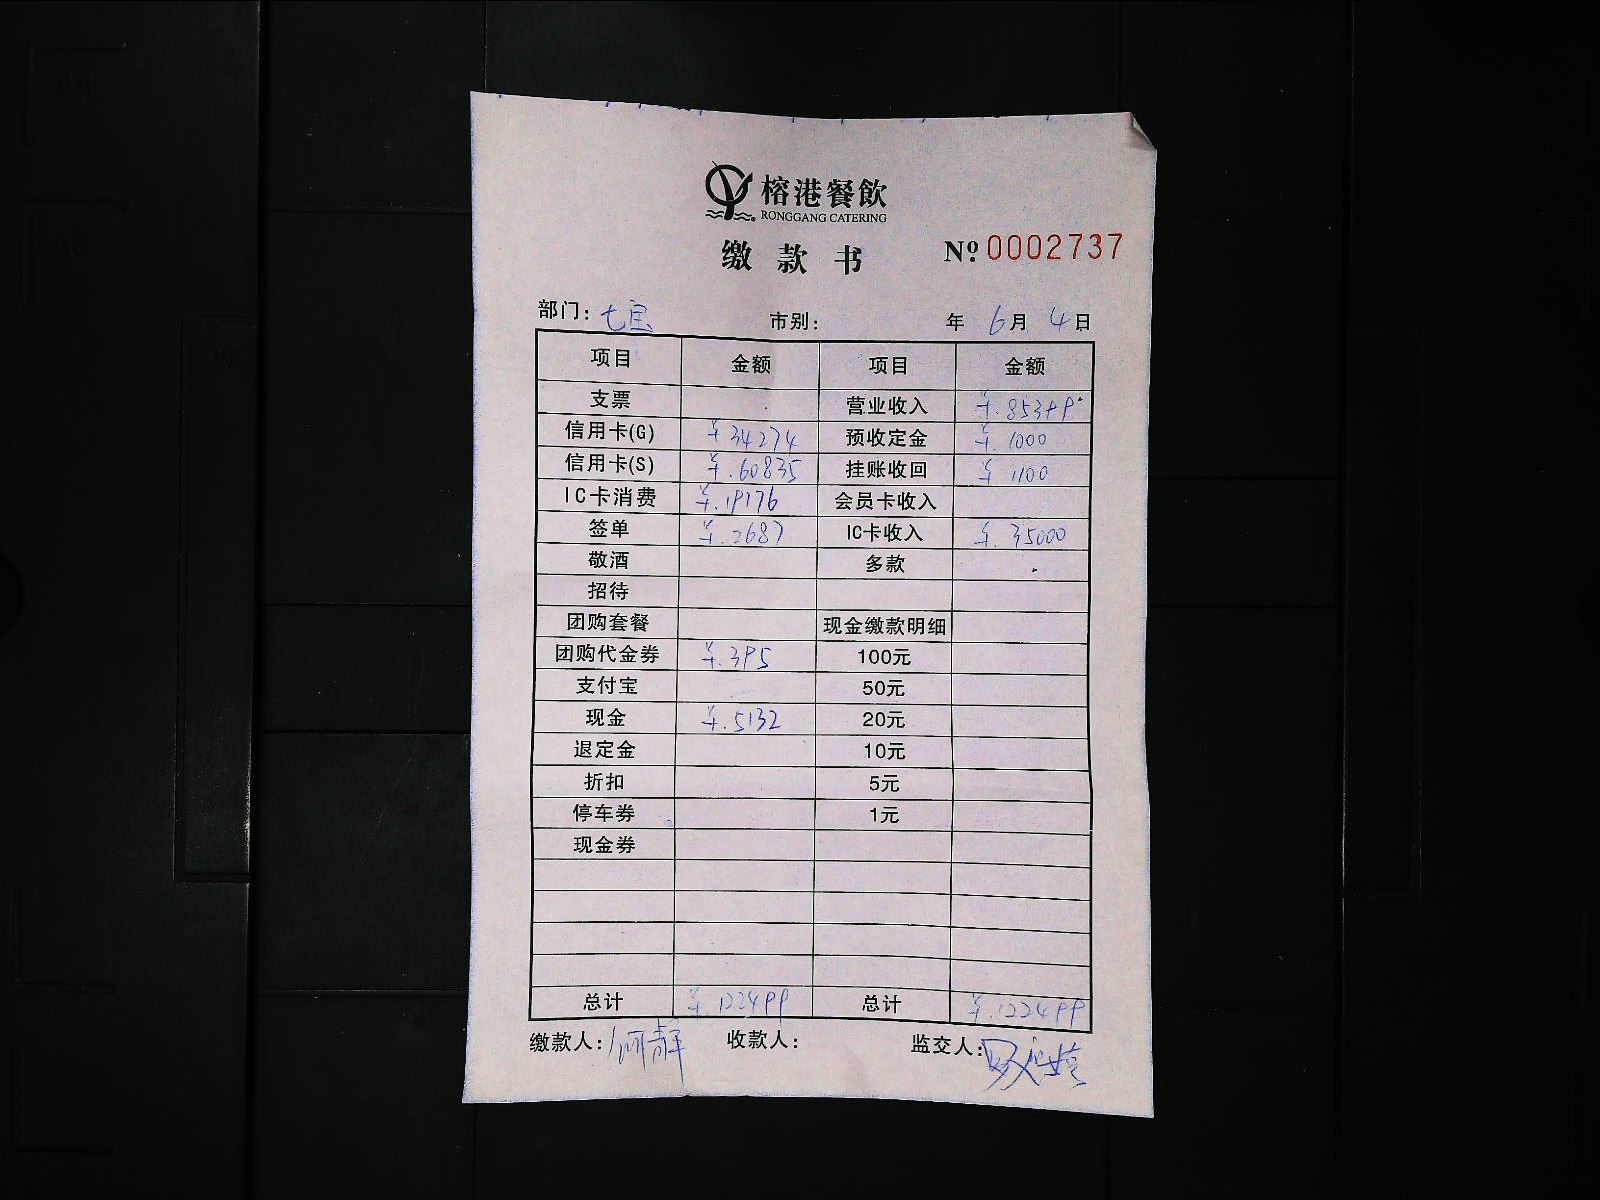 榕港餐飲
RONGGANG CATERING
缴款书 №0002737
部门：七宝 市别： 年 6月 4日
项目 金额 项目 金额
支票 营业收入 ¥.85399
信用卡(G) ¥34274 预收定金 ¥.1000
信用卡(S) ¥.60835 挂账收回 ¥1100
IC卡消费 ¥.19176 会员卡收入
签单 ¥.2687 IC卡收入 ¥.35000
敬酒 多款
招待
团购套餐 现金缴款明细
团购代金券 ¥.395 100元
支付宝 50元
现金 ¥.5132 20元
退定金 10元
折扣 5元
停车券 1元
现金券
总计 ¥.122499 总计 ¥.122499
缴款人：何静 收款人： 监交人：